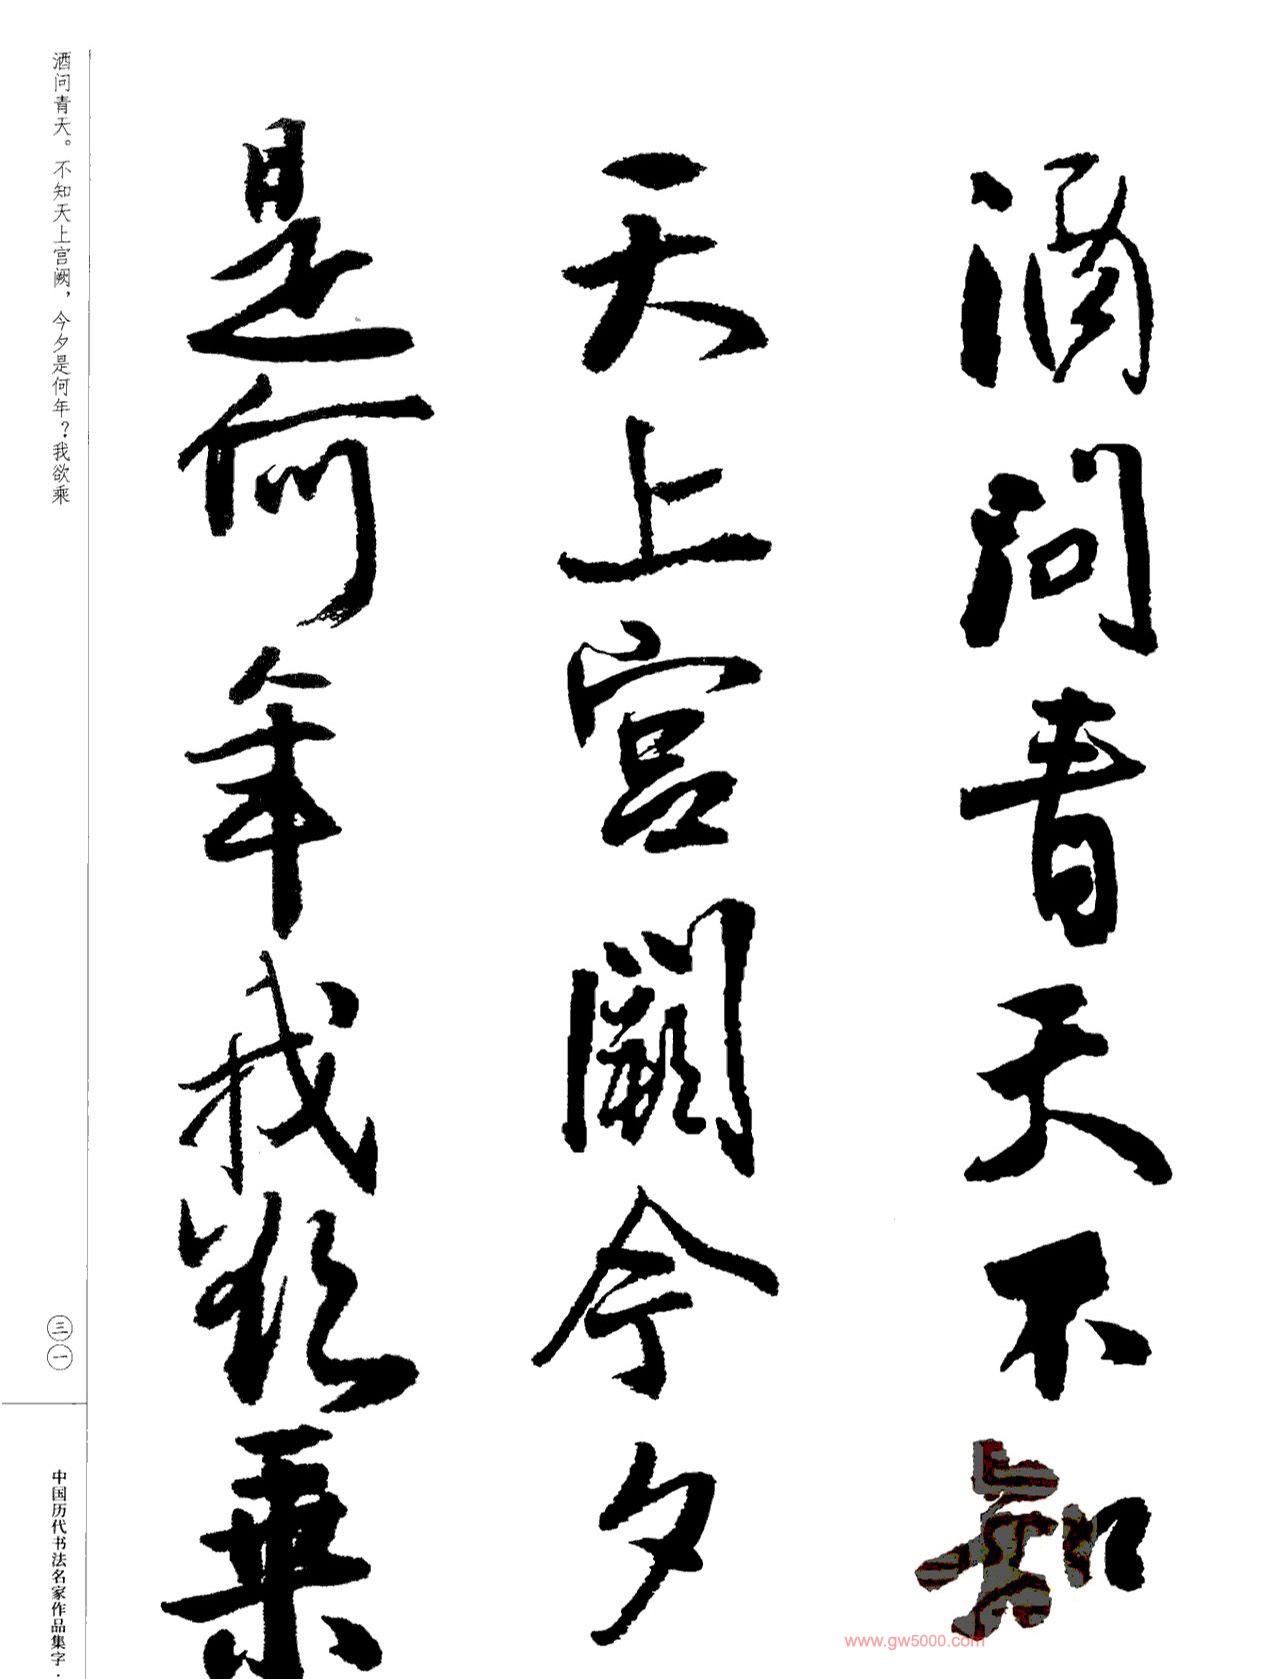 酒問青天不知
天上宫闕今夕
是何年我欲乘
酒问青天。不知天上宫阙，今夕是何年？我欲乘
三一
中国历代书法名家作品集字·
www.gw5000.com